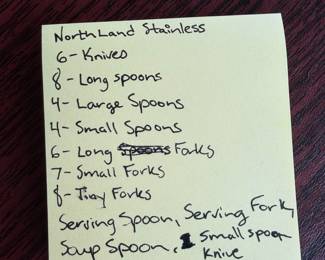 NorthLand Stainless
6 - Knives
8 - Long spoons
4 - Large Spoons
4 - Small Spoons
6 - Long Spoons Forks
7 - Small Forks
8 - Tiny Forks
Serving Spoon, Serving Fork,
Soup Spoon, Small spoon
Knive